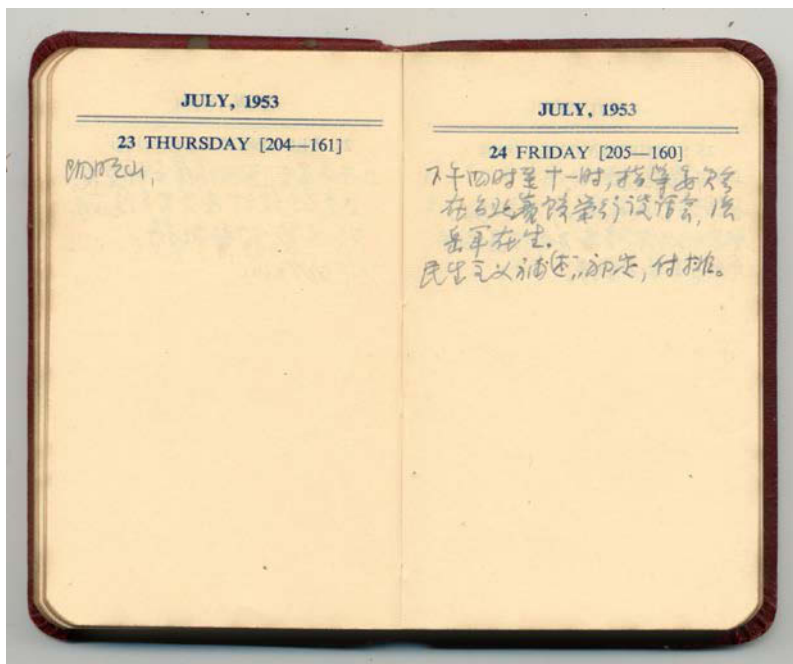 JULY, 1953
23 THURSDAY [204—161]
阳明山,
JULY, 1953
24 FRIDAY [205—160]
下午四时至十一时,指导委员会
在台北宾馆举行谈话会,
岳军在坐.
民生主义补述,初定,付排。